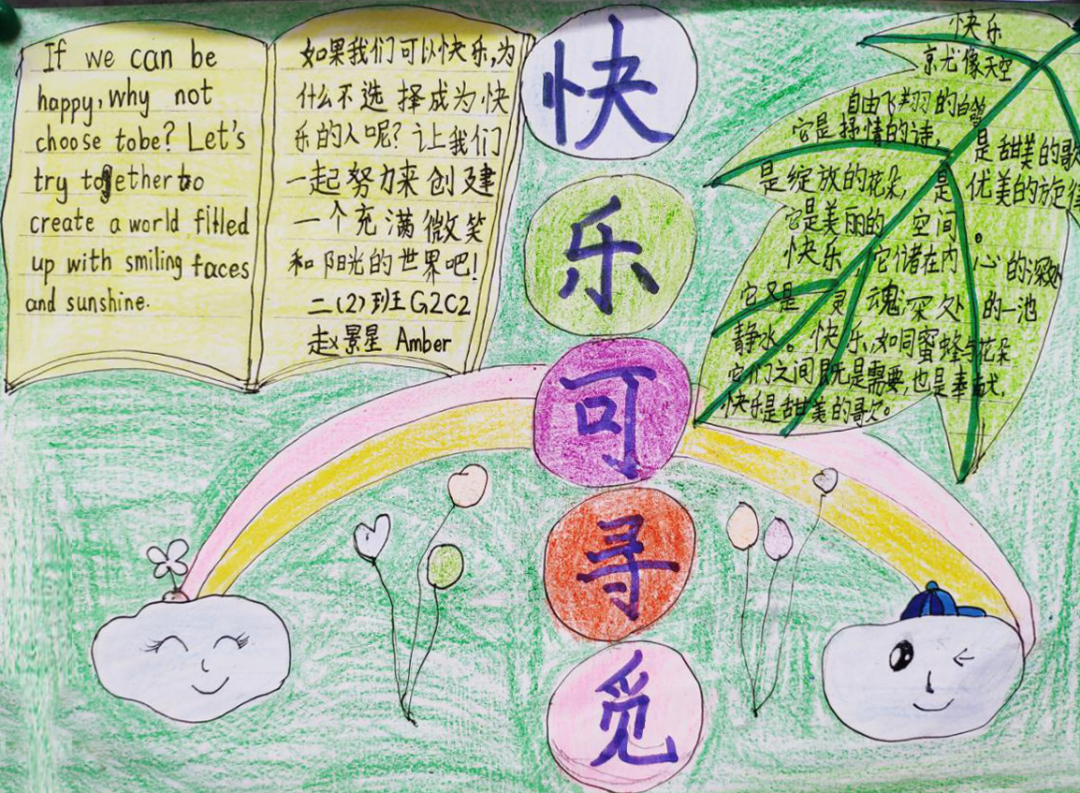 If we can be
happy, why not
choose tobe? Let's
try together to
create a world filled
up with smiling faces
and sunshine.
如果我们可以快乐,为
什么不选择成为快
乐的人呢?让我们
一起努力来创建
一个充满微笑
和阳光的世界吧!
二(2)班G2C2
赵景星 Amber
快
乐
可
寻
觅
快乐
就像天空
自由飞翔的
它是抒情的诗, 是甜美的歌
是绽放的花朵, 是优美的旋律
它是美丽的空间。
快乐,它储在内心的深处
它又是灵魂深处的一池
静水。快乐,如同蜜蜂与花朵
它们之间既是需要,也是奉献,
快乐是甜美的歌